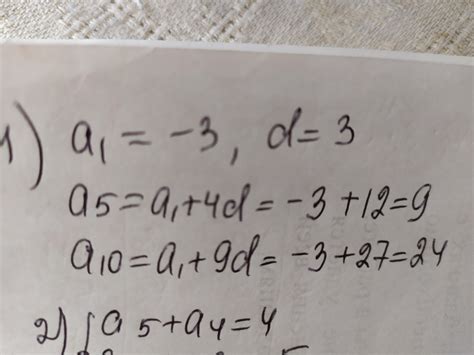 1) a₁ = -3, d = 3
a5 = a₁+4d = -3+12=9
a₁₀ = a₁+9d = -3+27=24
2) { a5+a4=4